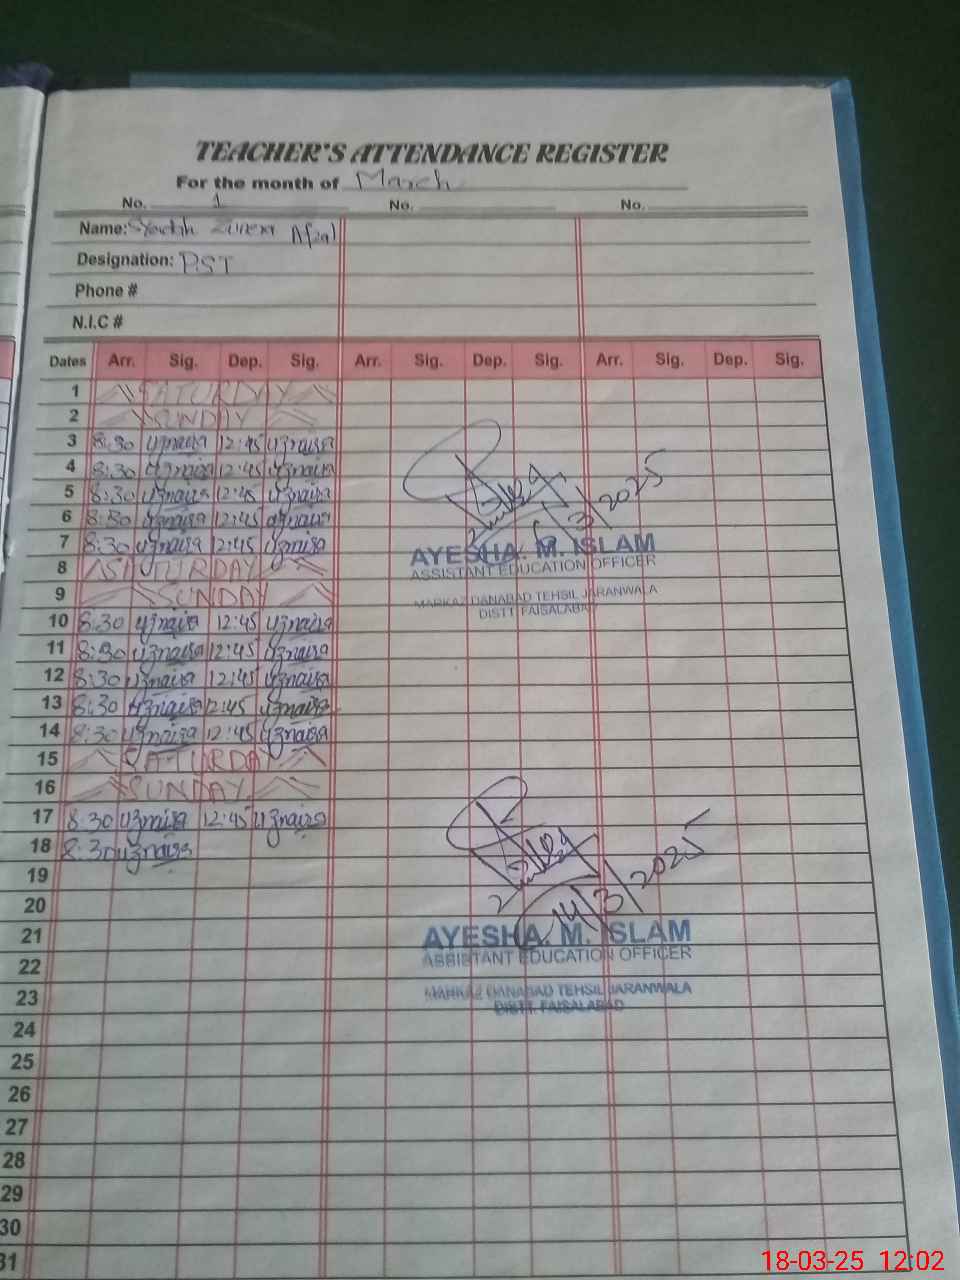 TEACHER'S ATTENDANCE REGISTER
For the month of March
No. 1 No. No.
Name: Afzal
Designation: PST
Phone #
N.I.C #
Dates Arr. Sig. Dep. Sig. Arr. Sig. Dep. Sig. Arr. Sig. Dep. Sig.
1 SATURDAY
2 SUNDAY
3 8:30 12:45
4 8:30 12:45
5 8:30 12:45
6 8:30 12:45
7 8:30 12:45
8 SATURDAY
9 SUNDAY
10 8:30 12:45
11 8:30 12:45
12 8:30 12:45
13 8:30 12:45
14 8:30 12:45
15 SATURDAY
16 SUNDAY
17 8:30 12:45
18 8:30
19
20
21
22
23
24
25
26
27
28
29
30
31
3 2025
AYESHA. M. ISLAM
ASSISTANT EDUCATION OFFICER
MARKAZ DANABAD TEHSIL JARANWALA
DISTT. FAISALABAD
14/3/2025
AYESHA. M. ISLAM
ASSISTANT EDUCATION OFFICER
MARKAZ DANABAD TEHSIL JARANWALA
DISTT. FAISALABAD
18-03-25 12:02